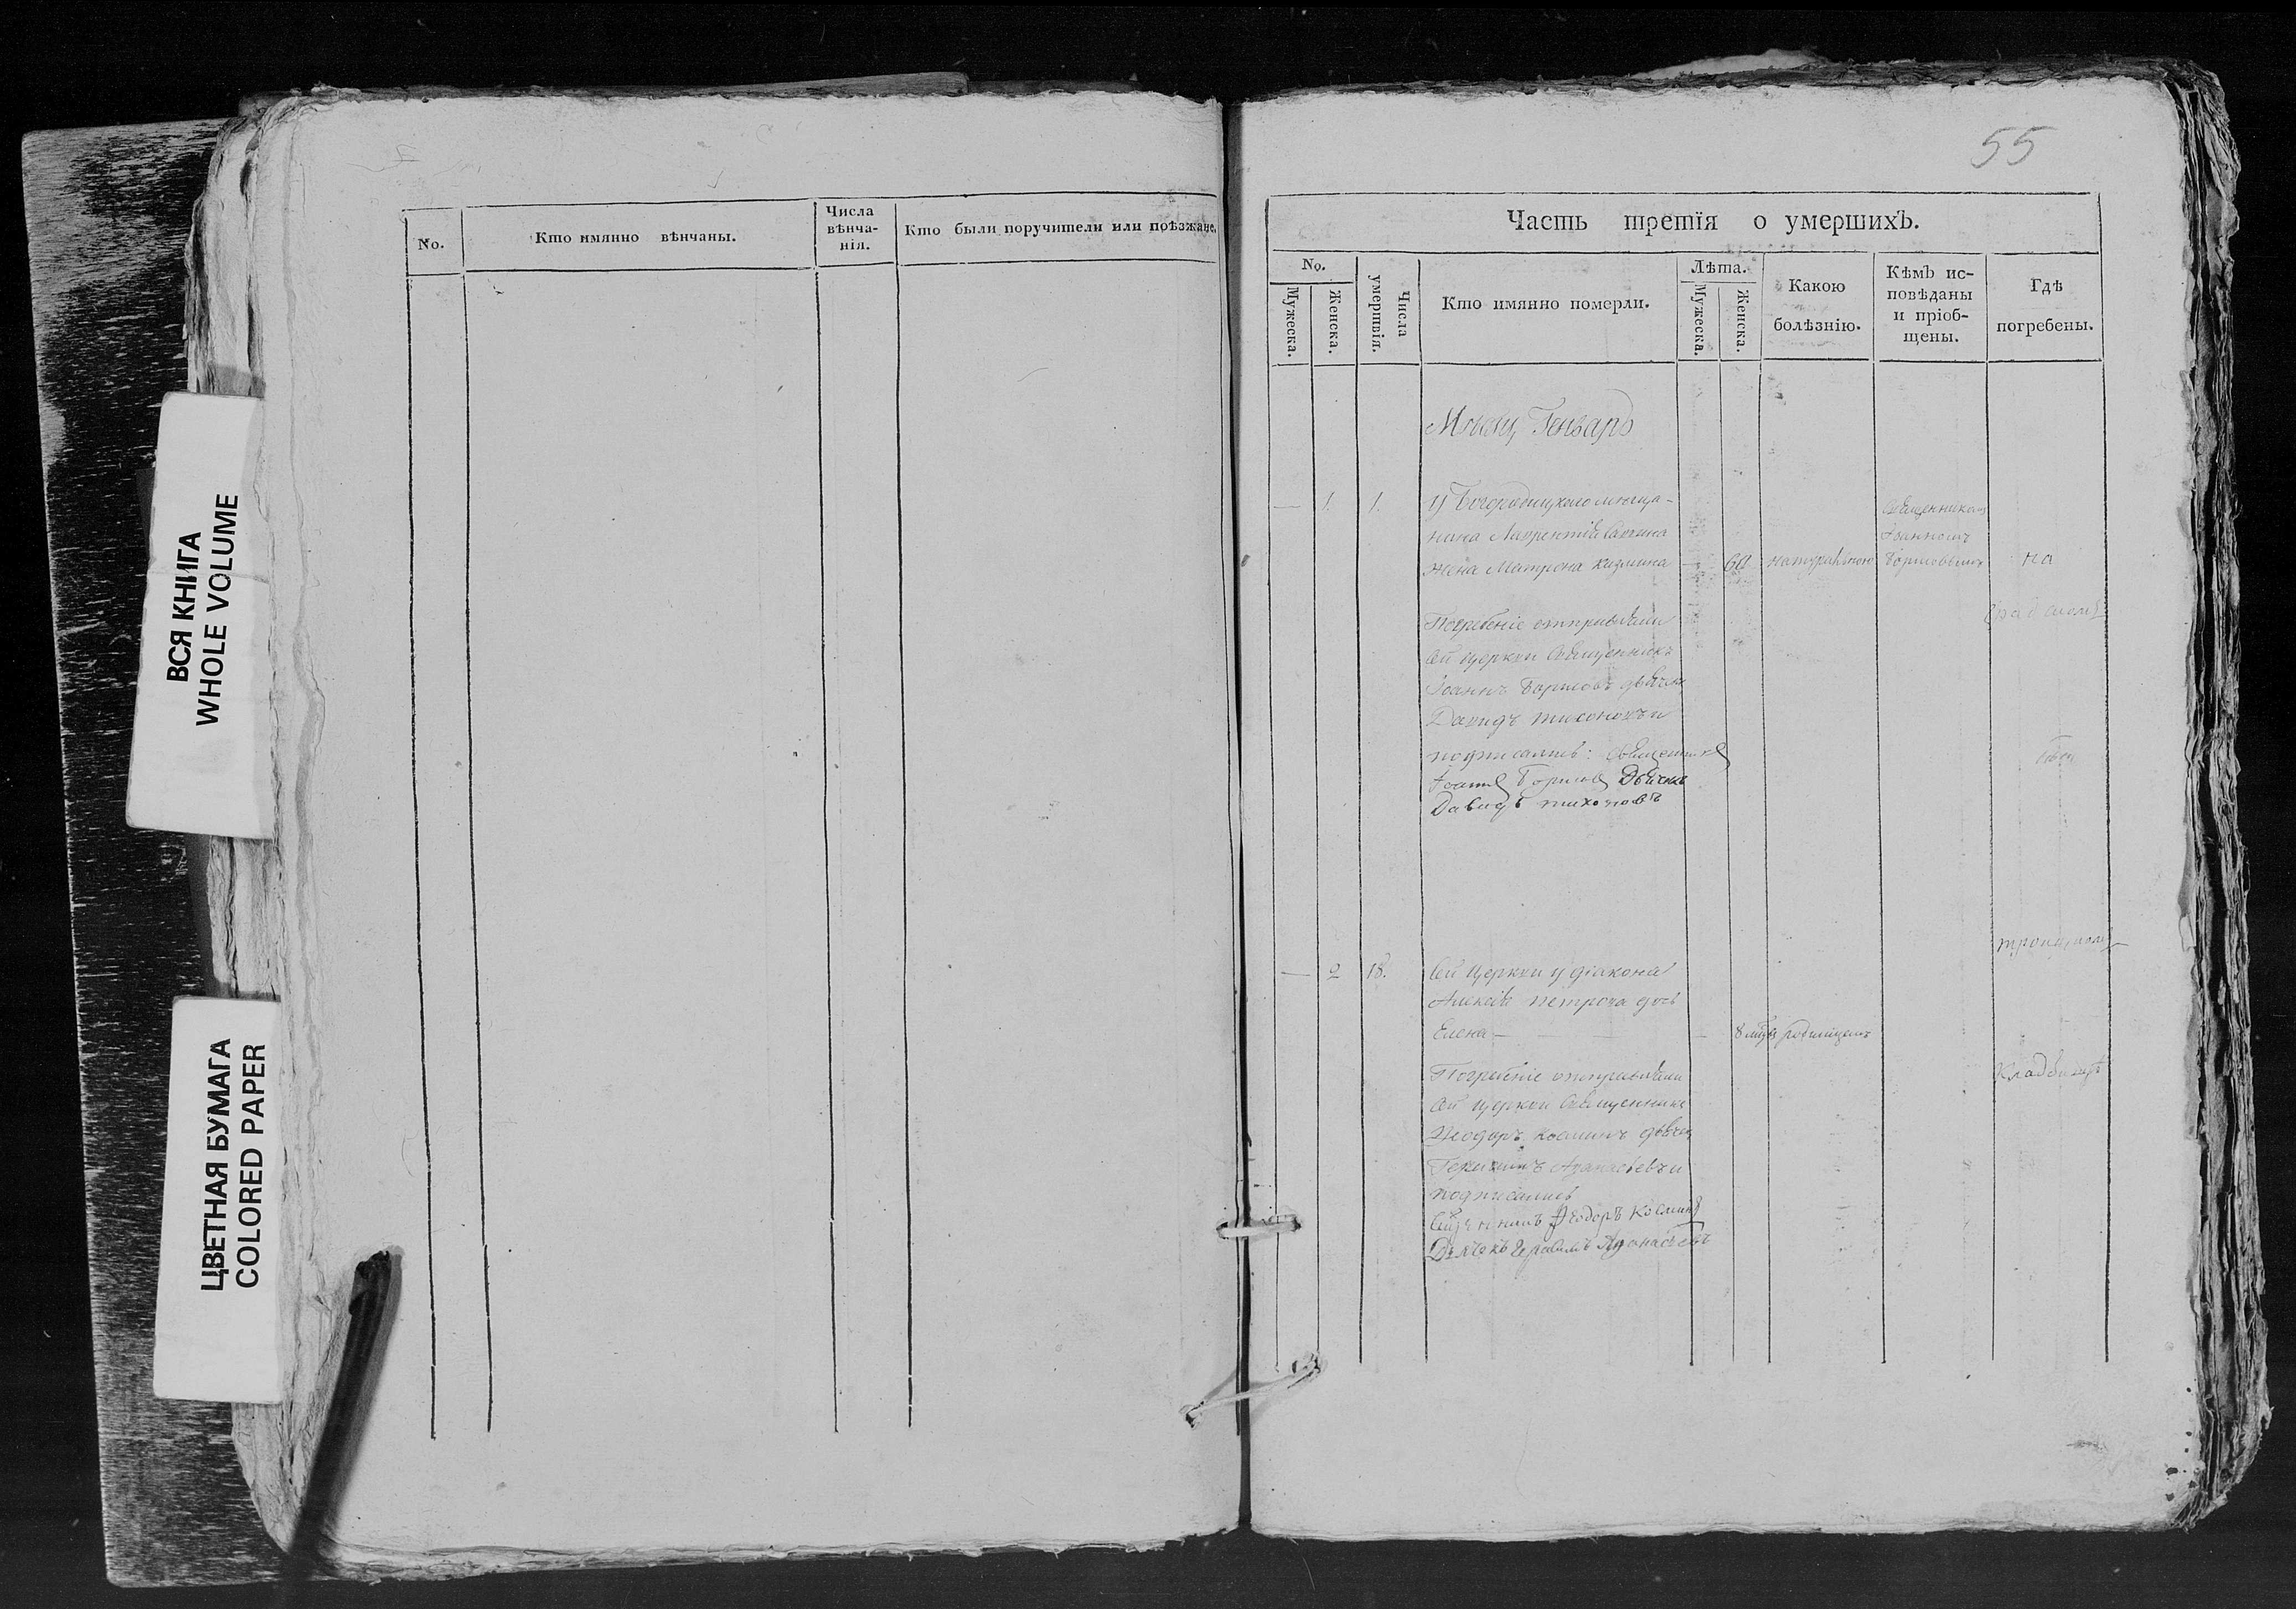 ВСЯ КНИГА
WHOLE VOLUME
ЦВЕТНАЯ БУМАГА
COLORED PAPER
No.
Кто имянно вѣнчаны.
Числа
вѣнча-
нія.
Кто были поручители или поѣзжане.
55
Часть третія о умершихъ.
No.
Мужеска.
Женска.
Числа
умертвія.
Кто имянно померли.
Лѣта.
Мужеска.
Женска.
Какою
болѣзнію.
Кѣмъ ис-
повѣданы
и пріоб-
щены.
Гдѣ
погребены.
Генварь
— 1. 1. У Богородицкаго мѣща-
нина Лаврентія
жена Матрона — 60 натуральною
Священникомъ
Іоанномъ
Борисовымъ
на
Погребеніе отправляли
сей церкви священникъ
Іоаннъ Борисовъ дьячекъ
Давидъ Тихоновъ и
подписались: священникъ
Іоаннъ Борисовъ Дьячекъ
Давидъ Тихоновъ
— 2 18. Сей церкви у діакона
Алексѣя Петрова дочь
Елена — — 8 родимцемъ
кладбищѣ
Погребеніе отправляли
сей церкви священникъ
Ѳеодоръ Косминъ дьячекъ
Герасимъ Афанасьевъ и
подписались
Ѳеодоръ Косминъ
Дьячокъ Герасимъ Афанасьевъ